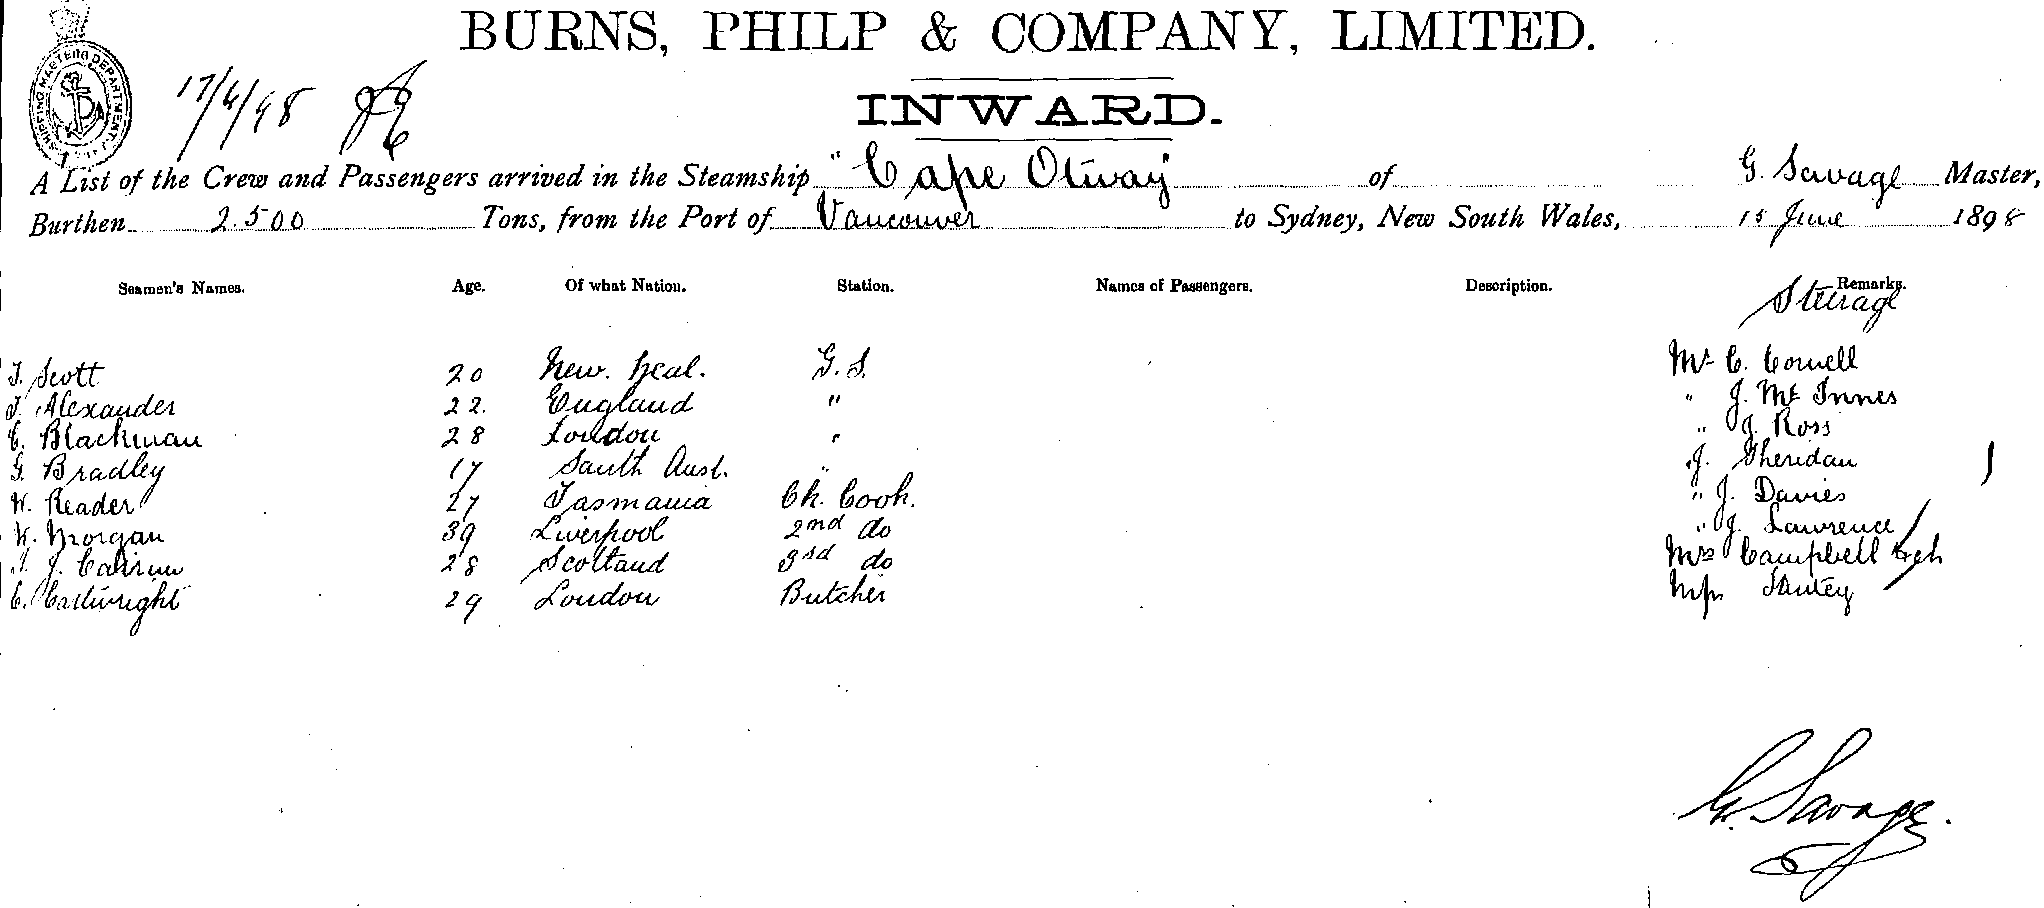 BURNS, PHILP & COMPANY, LIMITED.
SHIPPING MASTERS DEPARTMENT
17/6/98
INWARD.
A List of the Crew and Passengers arrived in the Steamship "Cape Otway" of G. Savage Master,
Burthen 2.500 Tons, from the Port of Vancouver to Sydney, New South Wales, 15 June 1898
Seamen's Names. Age. Of what Nation. Station. Names of Passengers. Description. Remarks.
Steerage
T. Scott 20 New. Zeal. G. S. Mr C. Cornell
T. Alexander 22. England " " J. Mc Innes
C. Blackman 28 London " " J. Ross
G. Bradley 17 South Aust. " " J. Sheridan
W. Reader 27 Tasmania Ch. Cook. " J. Davies
W. Morgan 39 Liverpool 2nd do " J. Lawrence
T. J. 28 Scotland 3rd do Mrs Campbell
C. Cartwright 29 London Butcher
G. Savage.